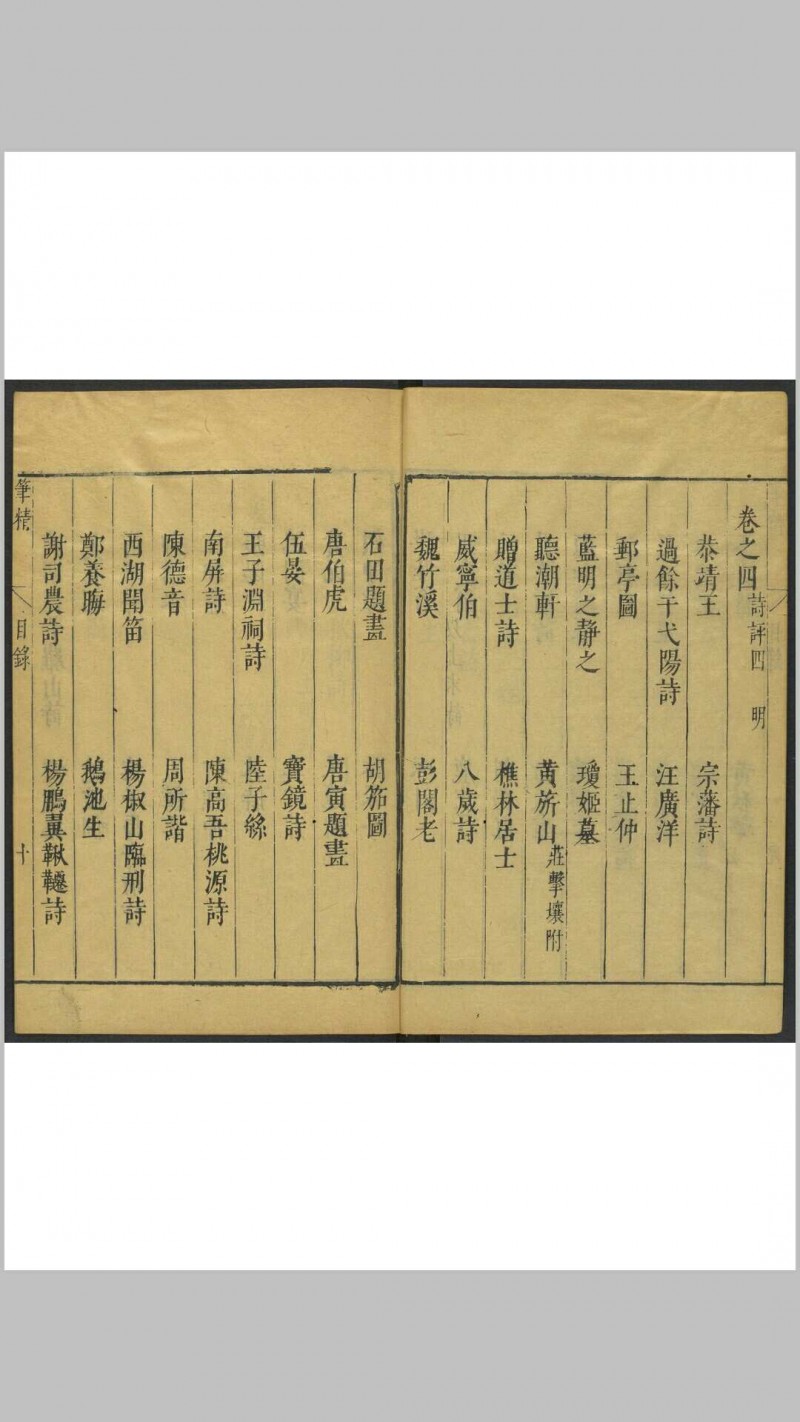 卷之四 詩評四 明
恭靖王 宗藩詩
過餘干弋陽詩 汪廣洋
郵亭圖 王止仲
藍明之靜之 瓊姬墓
聽潮軒 黃旂山 莊擊壤附
贈道士詩 樵林居士
威寧伯 八歲詩
魏竹溪 彭閣老
石田題畫 胡笳圖
唐伯虎 唐寅題畫
伍晏 寶鏡詩
王子淵祠詩 陸子絲
南屏詩 陳高吾桃源詩
陳德音 周所諧
西湖聞笛 楊椒山臨刑詩
鄭養晦 鵝池生
謝司農詩 楊鵬翼鞦韆詩
筆精 目錄 十